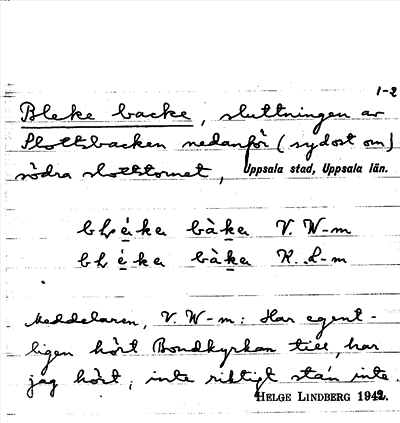 1-2
Bleke backe, sluttningen av
Slottsbacken nedanför (sydost om)
södra slottstornet, Uppsala stad, Uppsala län.
bàka V. W-m
bàka R. L-m
Meddelaren, V. W-m: Har egent-
ligen hört Bondkyrkan till, har
jag hört; inte riktigt sta'n inte.
HELGE LINDBERG 1942.